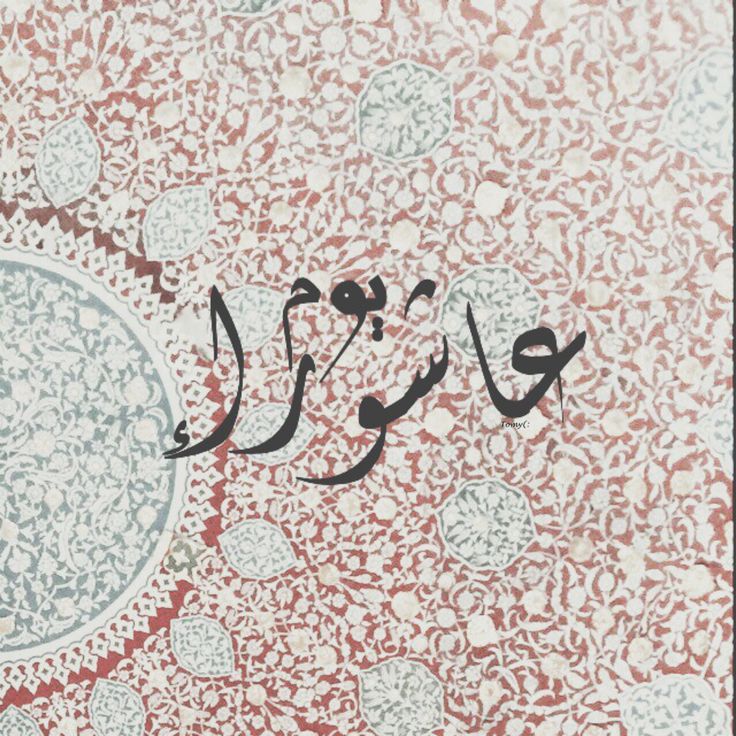 يوم
عاشوراء
Tomy(: